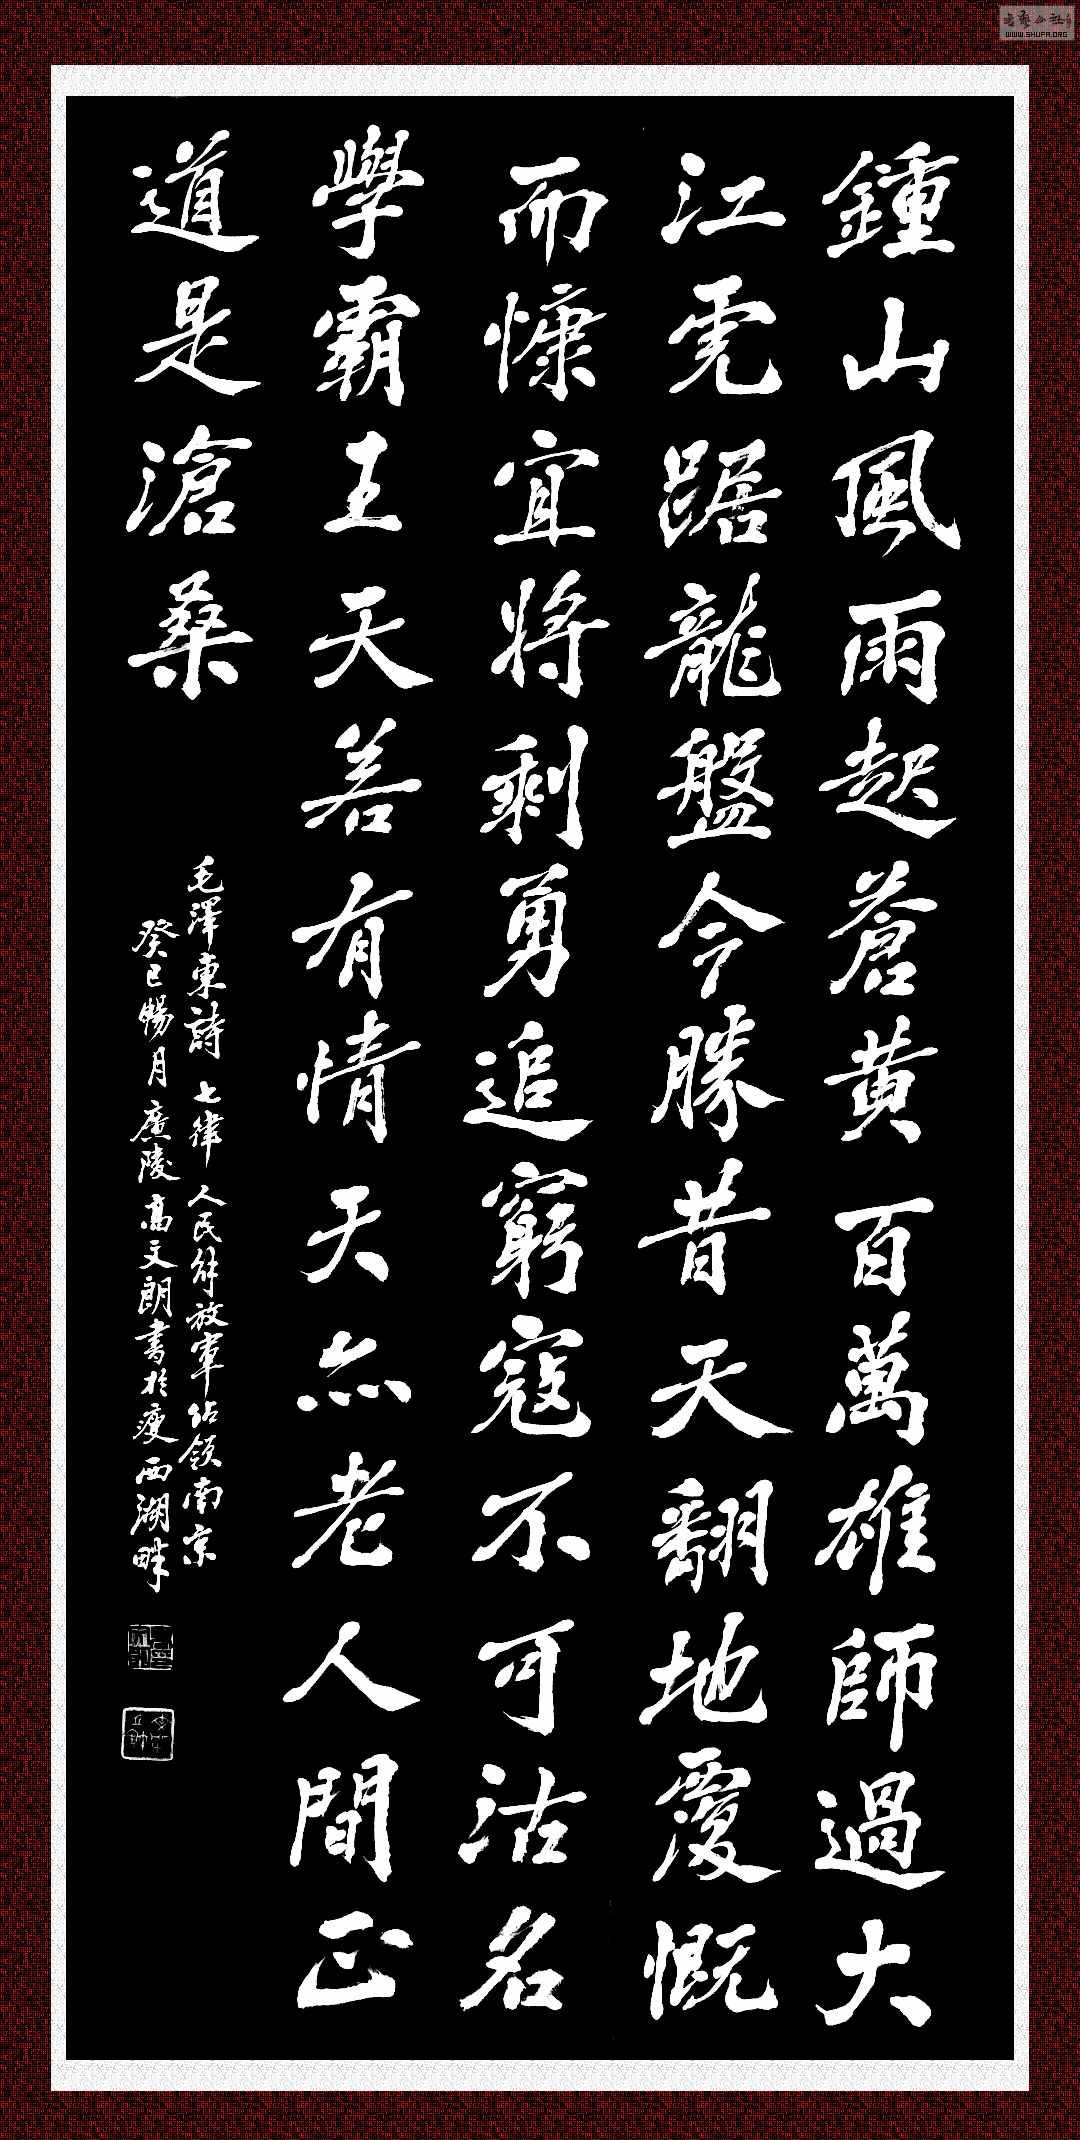 鍾山風雨起蒼黃百萬雄師過大
江虎踞龍盤今勝昔天翻地覆慨
而慷宜將剩勇追窮寇不可沽名
學霸王天若有情天亦老人間正
道是滄桑
毛澤東詩七律人民解放軍佔領南京
癸巳暢月廣陵高文朗書於瘦西湖畔
WWW.SHUFA.ORG